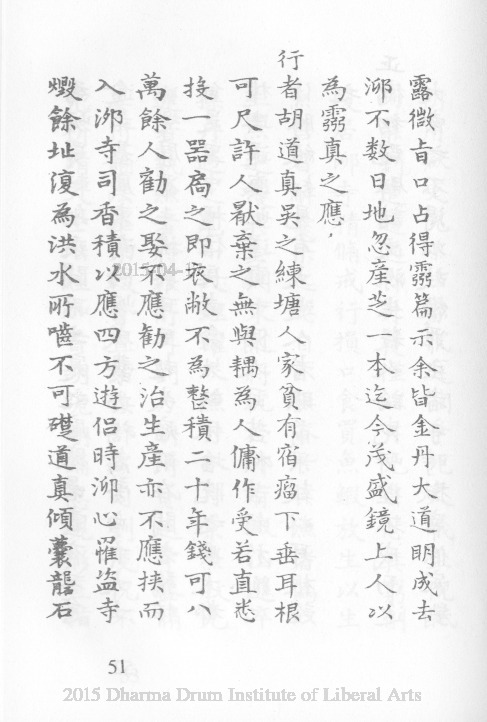 露微旨口占得霛篇示余皆金丹大道明成去
泖不数日地忽産芝一本迄今茂盛鏡上人以
為霛真之應，
行者胡道真吴之練塘人家貧有宿瘤下垂耳根
可尺許人厭棄之無與耦為人傭作受若直悉
投一器扄之即垓敝不為整積二十年錢可八
萬餘人勸之娶不應勸之治生産亦不應挟而
入泖寺司香積以應四方逰侣時泖心罹盗寺
燬餘址復為洪水所嚙不可礎道真傾囊礲石
2015/04/1
51
2015 Dharma Drum Institute of Liberal Arts